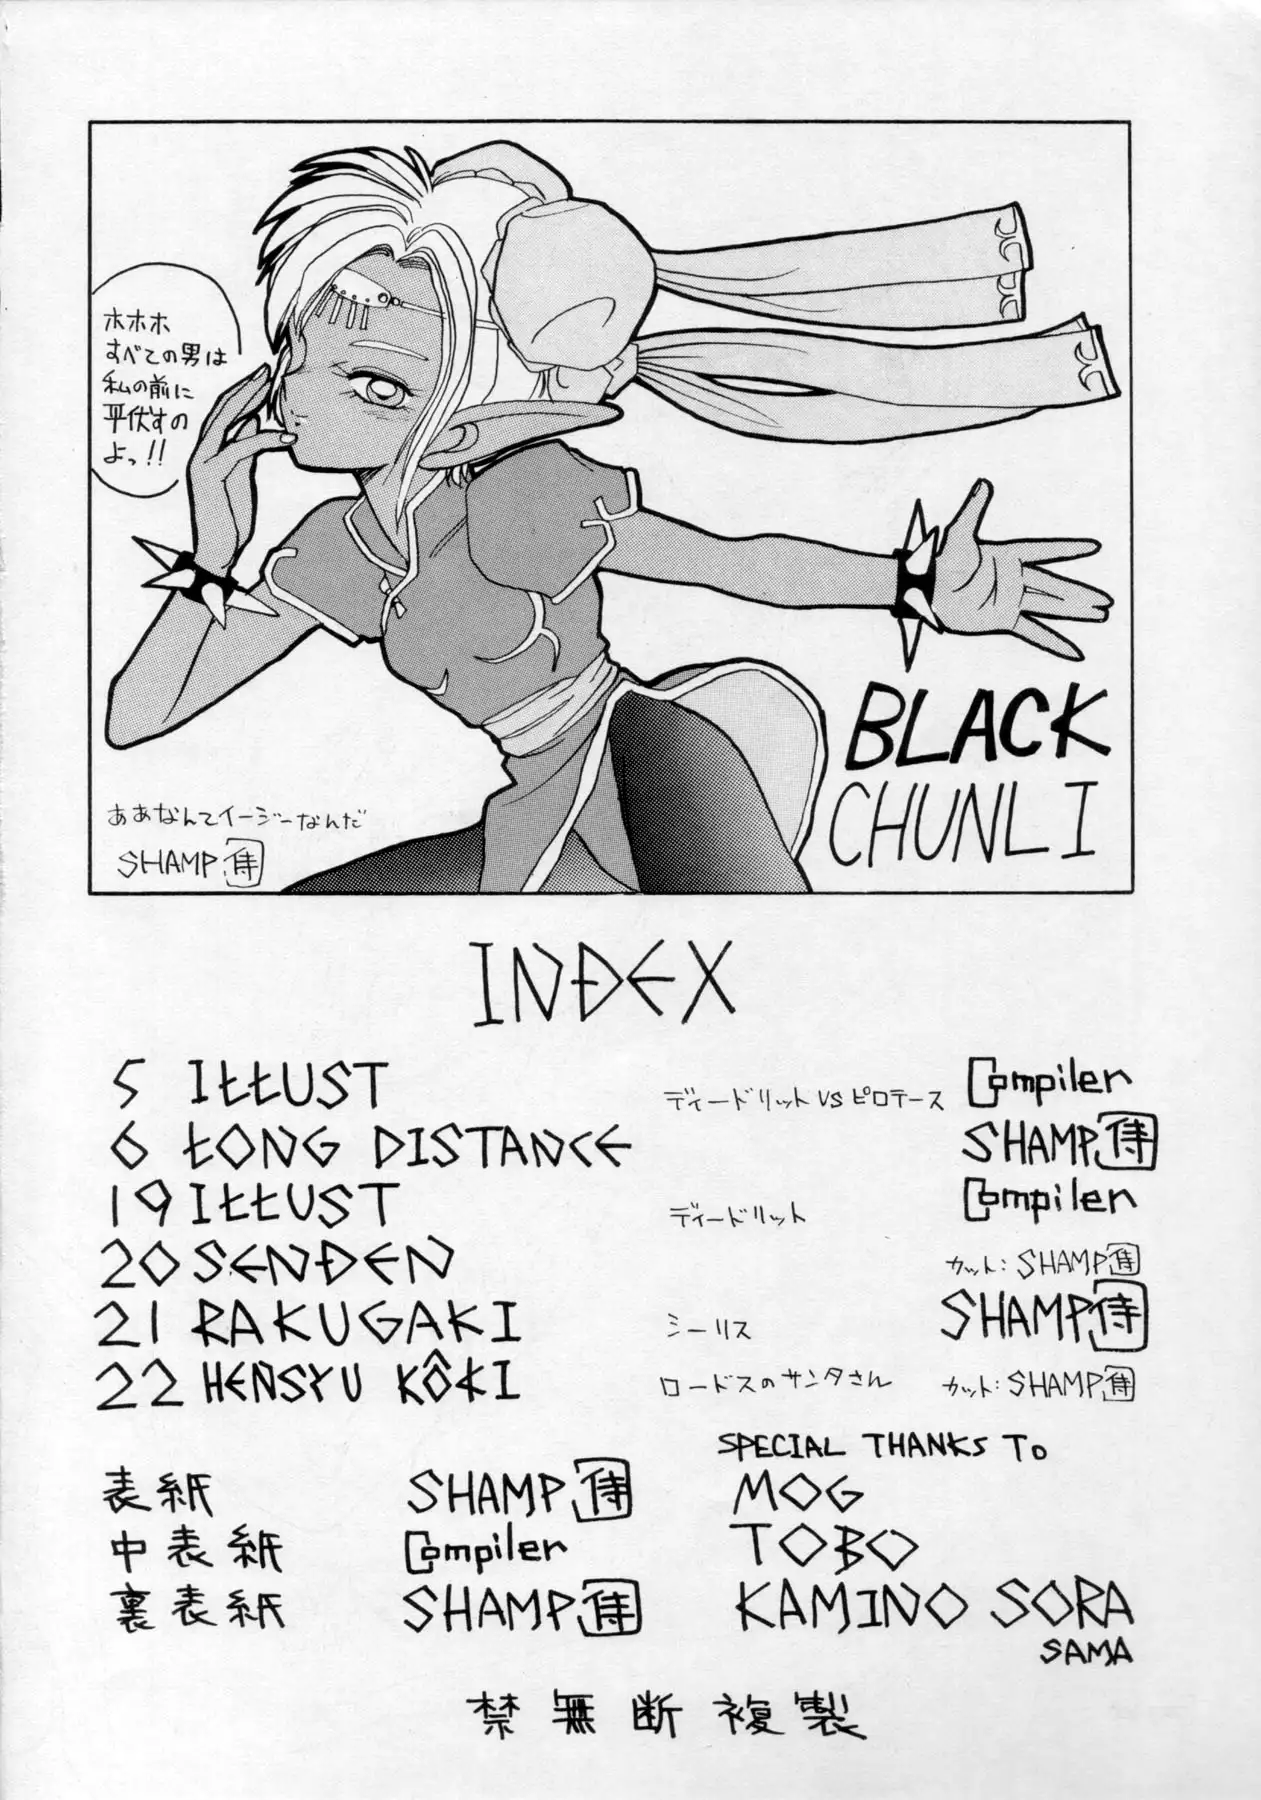 ホホホ
すべての男は
私の前に
平伏すの
よっ!!
BLACK
CHUNLI
ああなんてイージーなんだ
SHAMP 侍
INDEX
5 ILLUST ディードリット VS ピロテース Compiler
6 LONG DISTANCE SHAMP 侍
19 ILLUST ディードリット Compiler
20 SENDEN カット: SHAMP 侍
21 RAKUGAKI シーリス SHAMP 侍
22 HENSYU KÔKI ロードスのサンタさん カット: SHAMP 侍
表紙 SHAMP 侍
中表紙 Compiler
裏表紙 SHAMP 侍
SPECIAL THANKS TO
MOG
TOBO
KAMINO SORA
SAMA
禁無断複製